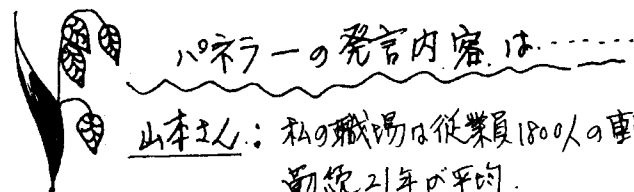 パネラーの発言内容は……
山本さん：私の職場は従業員1800人の車
勤続21年が平均.